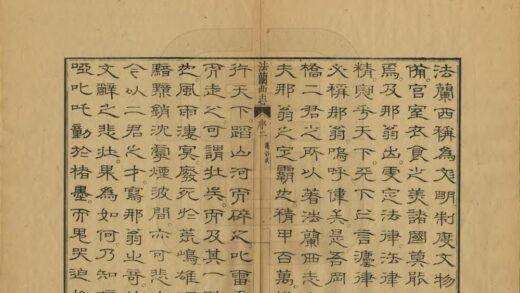 法蘭西稱為文明制度文物
備宮室衣食之美諸國莫能
焉及那翁出更定法律法律
精奧乎天下天下之言灋律
必稱那翁嗚呼偉矣是吾岡
橋二君之所以著法蘭西志
夫那翁之定霸也積甲百萬
法蘭西志 序二
行天下蹈山河而碎之叱雷
而走之可謂壯矣而及其一
也風雨淒冥廢死於荒嶋雄
黯黮銷沈煙波間亦可悲
今以二君之才寫那翁之奇
文辭之悲壯果為如何乃知
啞叱吒動於楮墨而鬼哭迫